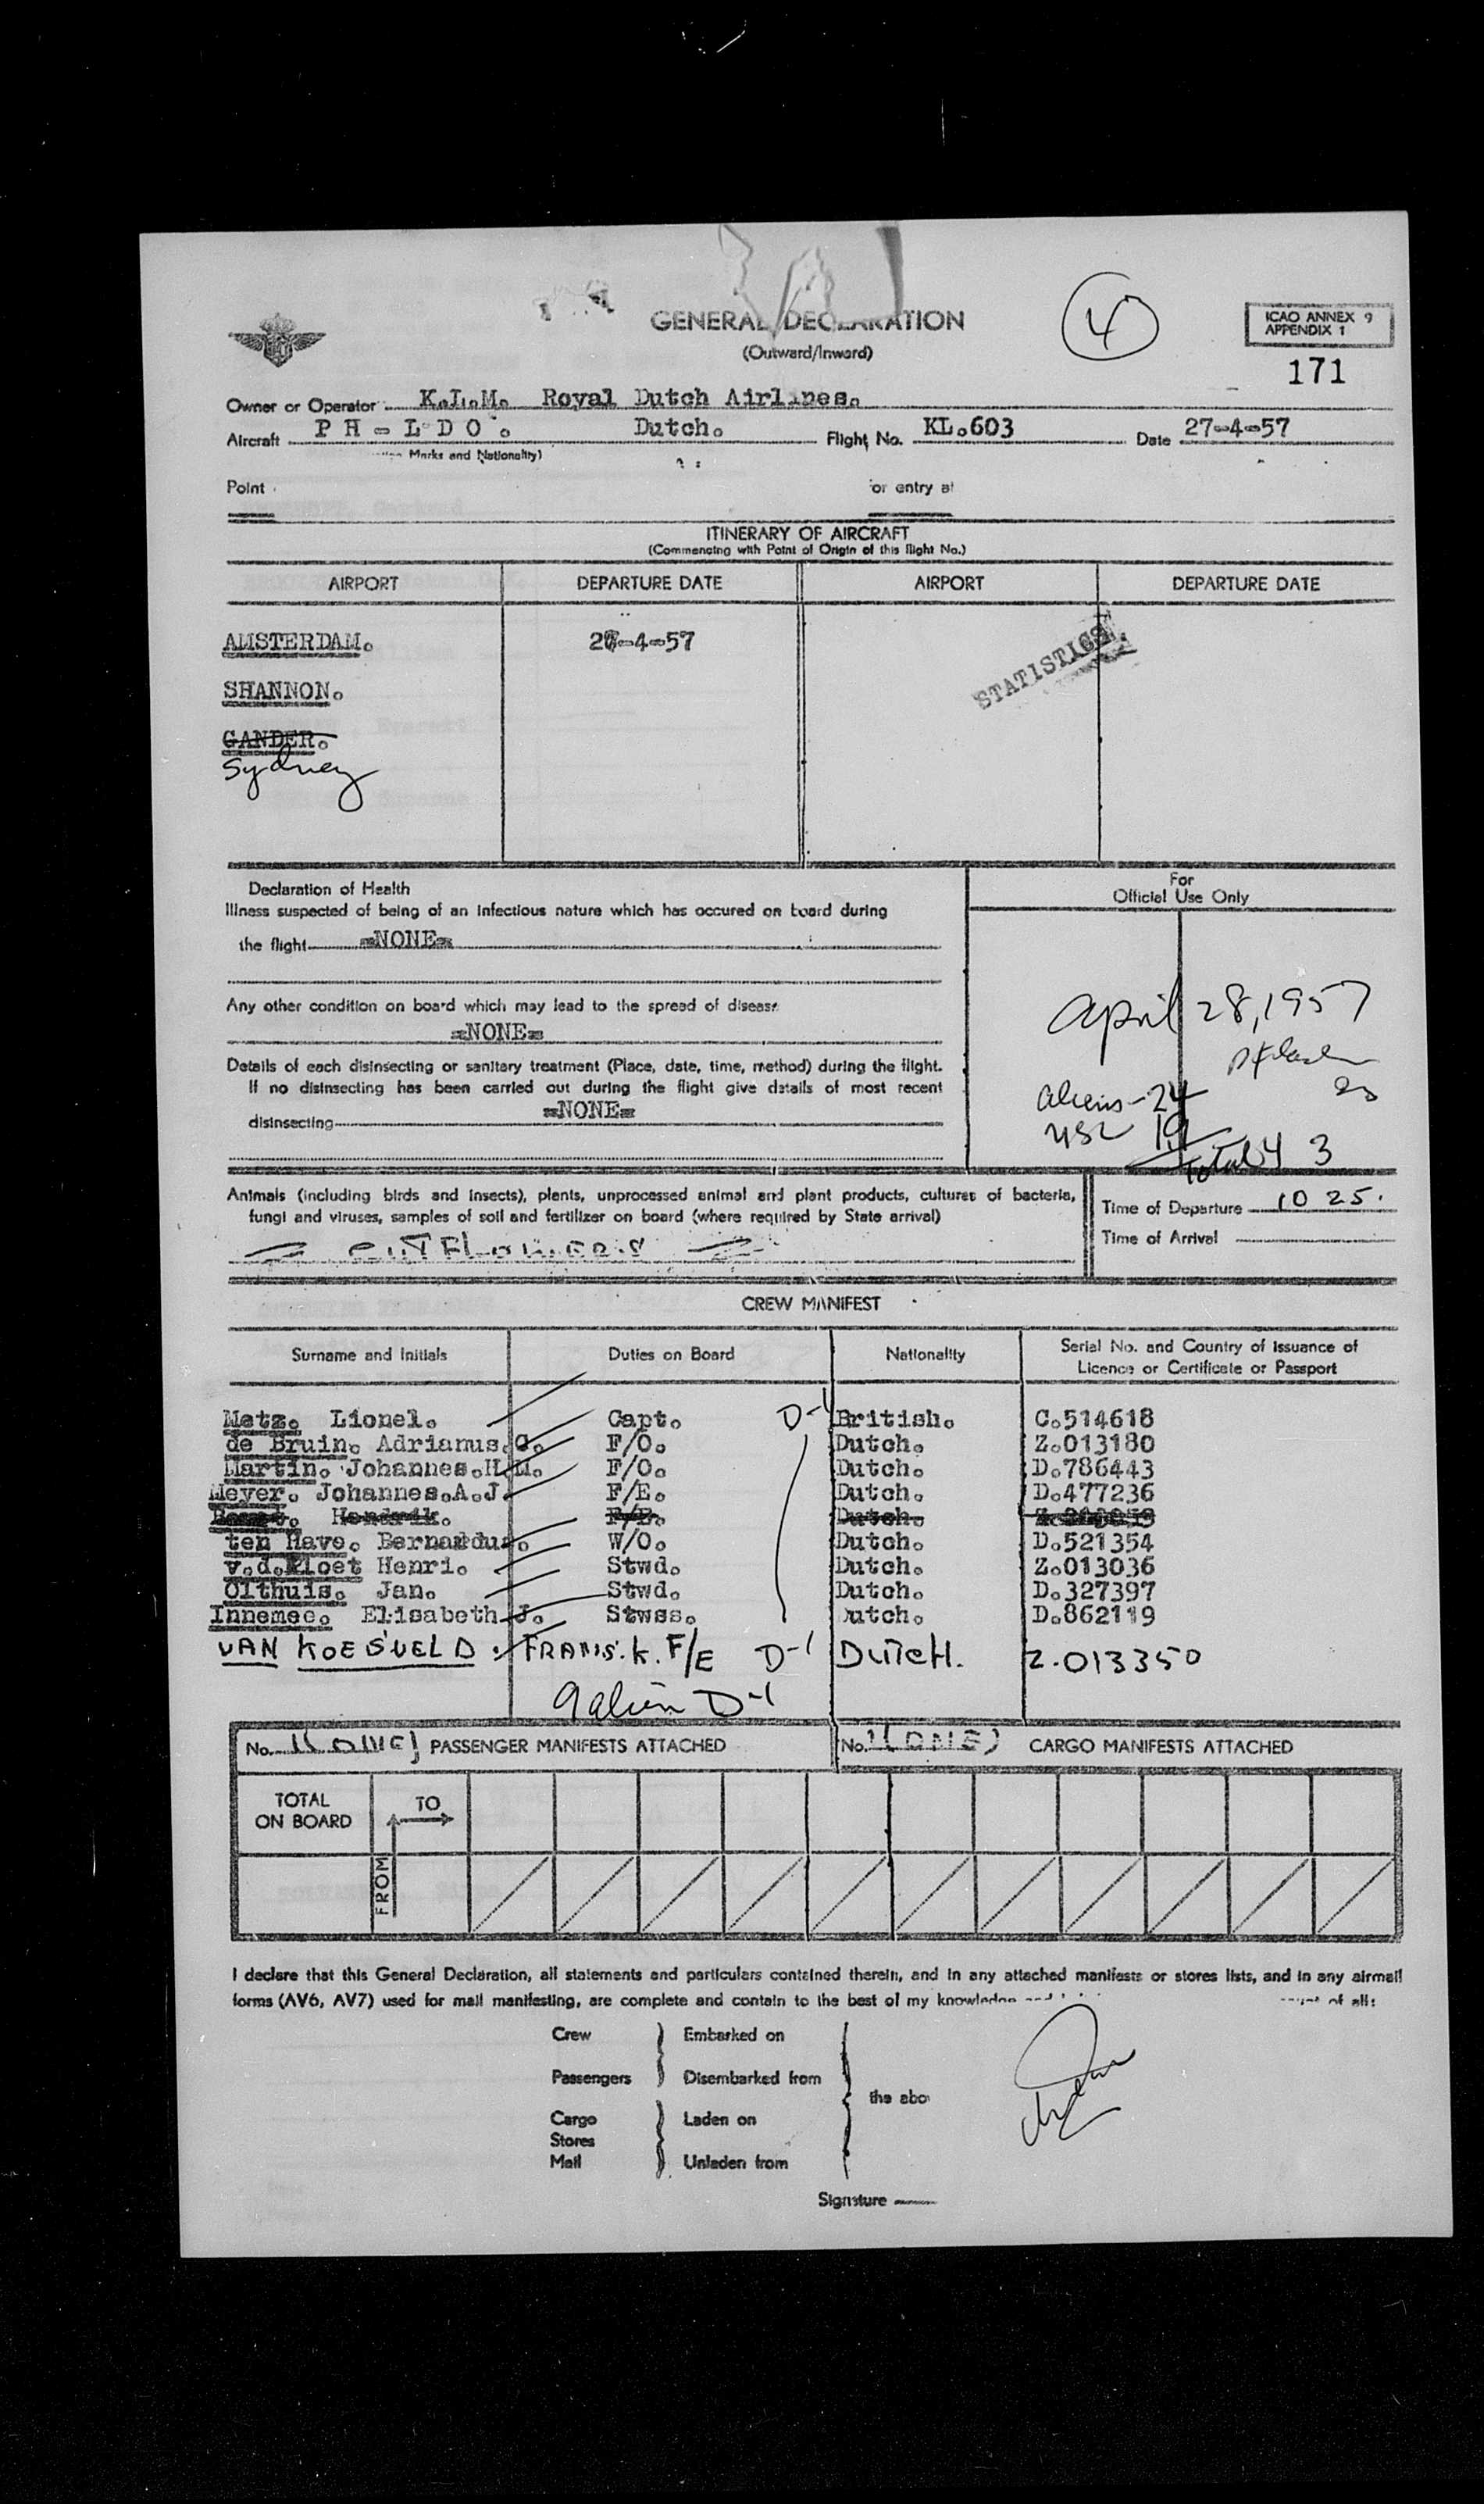 GENERAL DECLARATION
(Outward/Inward)
4
ICAO ANNEX 9
APPENDIX 1
171
Owner or Operator K.L.M. Royal Dutch Airlines.
Aircraft PH-LDO. Dutch. Flight No. KL.603 Date 27-4-57
Marks and Nationality)
Point or entry at
ITINERARY OF AIRCRAFT
(Commencing with Point of Origin of this flight No.)
AIRPORT DEPARTURE DATE AIRPORT DEPARTURE DATE
AMSTERDAM. 27-4-57
STATISTICS
SHANNON.
GANDER.
Sydney
Declaration of Health
Illness suspected of being of an infectious nature which has occured on board during
the flight =NONE=
Any other condition on board which may lead to the spread of disease
=NONE=
Details of each disinsecting or sanitary treatment (Place, date, time, method) during the flight.
If no disinsecting has been carried out during the flight give details of most recent
disinsecting =NONE=
For
Official Use Only
April 28, 1957
aliens - 24
usc 19
Total 43
Animals (including birds and insects), plants, unprocessed animal and plant products, cultures of bacteria,
fungi and viruses, samples of soil and fertilizer on board (where required by State arrival)
= CUTFLOWERS =
Time of Departure 10 25.
Time of Arrival
CREW MANIFEST
Surname and Initials Duties on Board Nationality Serial No. and Country of Issuance of
Licence or Certificate or Passport
Metz. Lionel. Capt. D-1 British. C.514618
de Bruin. Adrianus.C. F/O. Dutch. Z.013180
Martin. Johannes.H.M. F/O. Dutch. D.786443
Meyer. Johannes.A.J. F/E. Dutch. D.477236
Hendrik. F/E. Dutch.
ten Have. Bernardus. W/O. Dutch. D.521354
v.d.Kloet Henri. Stwd. Dutch. Z.013036
Olthuis. Jan. Stwd. Dutch. D.327397
Innemee. Elisabeth J. Stwss. utch. D.862119
VAN KOESVELD. FRANS.K. F/E D-1 DUTCH. Z.013350
9 alien D-1
No. 1(ONE) PASSENGER MANIFESTS ATTACHED No. 1(ONE) CARGO MANIFESTS ATTACHED
TOTAL
ON BOARD
TO
FROM
I declare that this General Declaration, all statements and particulars contained therein, and in any attached manifests or stores lists, and in any airmail
forms (AV6, AV7) used for mail manifesting, are complete and contain to the best of my knowledge of all:
Crew Embarked on
Passengers Disembarked from
the abo
Cargo Laden on
Stores
Mail Unladen from
Signature